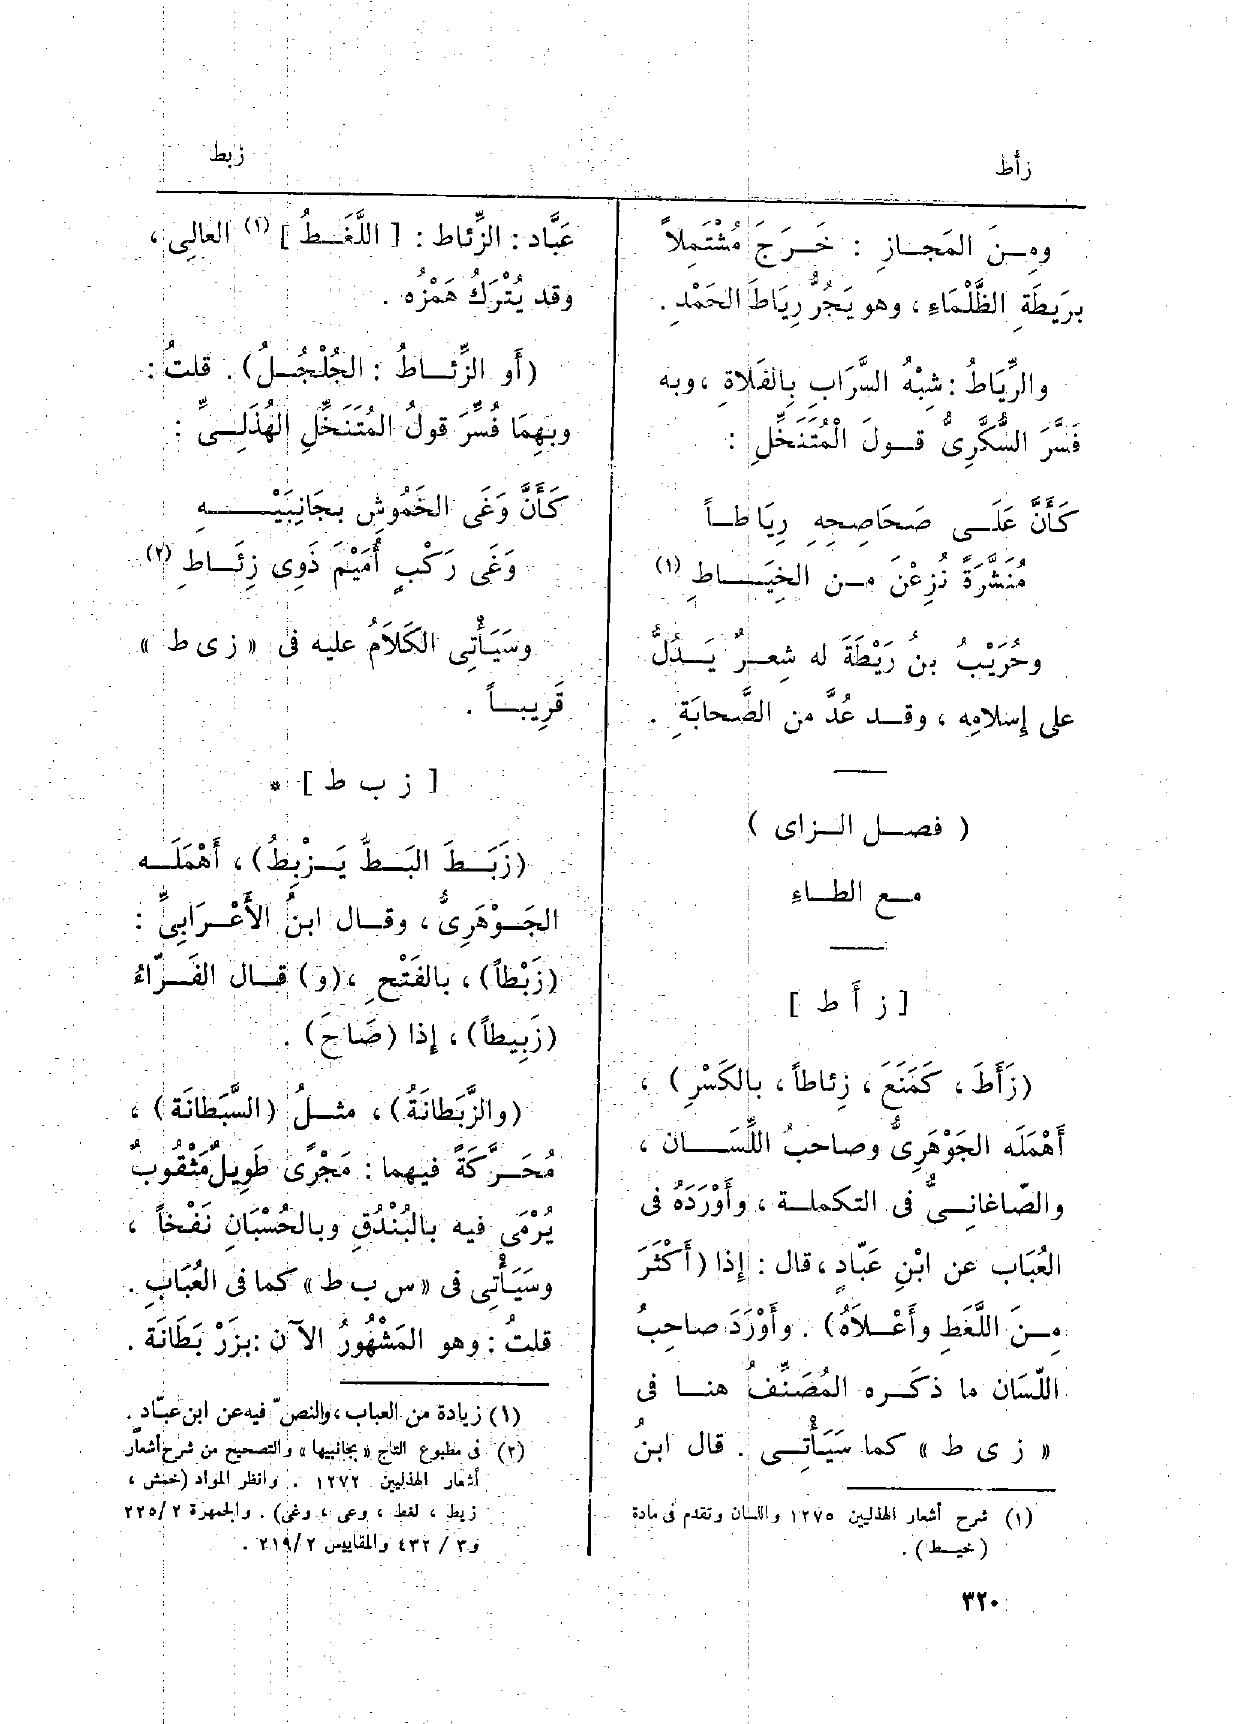 زأط
زبط
ومِـنَ المَجـازِ : خَـرَجَ مُشْتَمِلاً
بِرَيطَةِ الظَّلْمَاءِ ، وهو يَجُرُّ رِيَاطَ الحَمْدِ .
والرِّيَاطُ : شِبْهُ السَّرَابِ بِالفَلاةِ ، وبه
فَسَّرَ السُّكَّرِىُّ قـولَ الْمُتَنَخِّلِ :
كَأَنَّ عَلَـى صَحَاصِحِهِ رِيَاطـاً
مُنَشَّرَةً نُزِعْنَ مـن الخِيَـاطِ (١)
وحُرَيْبُ بنُ رَيْطَةَ له شِعـرٌ يَـدُلُّ
على إِسلامِه ، وقـد عُدَّ من الصَّحابَةِ .
( فصـل الـزاى )
مـع الطـاء
[ ز أ ط ]
(زَأَطَ ، كَمَنَعَ ، زِئاطاً ، بالكَسْرِ) ،
أَهْمَلَه الجَوْهَرِىُّ وصاحبُ اللِّسَـان ،
والصّاغانِـىُّ فى التكملـة ، وأَوْرَدَهُ فى
العُبَاب عن ابْنِ عَبّادٍ ، قال : إِذا (أَكْثَرَ
مِـنَ اللَّغَطِ وأَعْـلاَهُ) . وأَوْرَدَ صاحِبُ
اللّسَان ما ذكَـره المُصَنِّفُ هنـا فى
« ز ى ط » كما سَيَأْتِـى . قال ابنُ
(١) شرح أشعار الهذليين ١٢٧٥ واللسان وتقدم فى مادة
(خيـط) .
عَبَّاد : الزِّئاط : [ اللَّغَـطُ ] (١) العالِى ،
وقد يُتْرَكُ هَمْزُه .
(أَو الزِّئـاطُ : الجُلْجُـلُ) . قلتُ :
وبِهِمَا فُسِّرَ قولُ المُتَنَخِّلِ الهُذَلِـىِّ :
كَأَنَّ وَغَى الخَمُوشِ بِجَانِبَيْـهِ
وَغَى رَكْبٍ أُمَيْمَ ذَوِى زِئَـاطِ (٢)
وسَيَأْتِى الكَلاَمُ عليه فى « ز ى ط »
قَرِيبـاً .
[ ز ب ط ] *
(زَبَـطَ البَـطُّ يَـزْبِطُ) ، أَهْمَلَـه
الجَـوْهَرِىُّ ، وقـال ابنُ الأَعْـرَابِىِّ :
(زَبْطاً) ، بالفَتْحِ ، (و) قـال الفَـرّاءُ
(زَبِيطاً) ، إِذا (صَاحَ) .
(والزَّبَطانَةُ) ، مثـلُ (السَّبَطانَة) ،
مُحَـرَّكَةً فيهما : مَجْرًى طَوِيلٌ مَثْقُوبٌ
يُرْمَى فيه بالبُنْدُقِ وبالحُسْبَانِ نَفْخاً ،
وسَيَأْتِى فى « س ب ط » كما فى العُبَابِ .
قلتُ : وهو المَشْهُورُ الآن : بِزَرْ بَطَانَة .
(١) زيادة من العباب ، والنص فيه عن ابن عبّاد .
(٢) فى مطبوع التاج « بجانبيها » والتصحيح من شرح أشعار
أشعار الهذليين ١٢٧٢ . وانظر المواد (خمش ،
زيط ، لغط ، وعى ، وغى) . والجمهرة ٢٢٥/٢
و٣ / ٤٣٢ والمقاييس ٢١٩/٢ .
٣٢٠